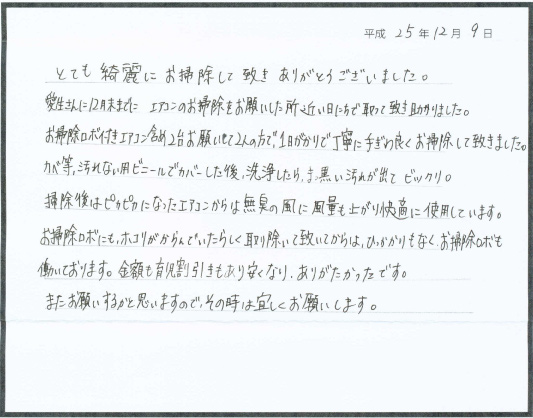 平成 25年12月9日
とても 綺麗に お掃除して 致き ありがとうございました。
愛生さんに12月末までに エアコンのお掃除をお願いした所 近い日にちで取って致き助かりました。
お掃除ロボ付きエアコン含め2台お願いして2人の方で、1日がかりで丁寧に手ぎわ良くお掃除して致きました。
カベ等、汚れない用ビニールでカバーした後、洗浄したら、ま黒い汚れが出て ビックリ。
掃除後はピカピカになったエアコンからは無臭の風に 風量も上がり快適に使用しています。
お掃除ロボにも、ホコリがからんでいたらしく取り除いて致いてからは、ひっかかりもなく、お掃除ロボも
働いております。金額も育児割引きもあり安くなり、ありがたかったです。
またお願いするかと思いますので、その時は宜しくお願いします。